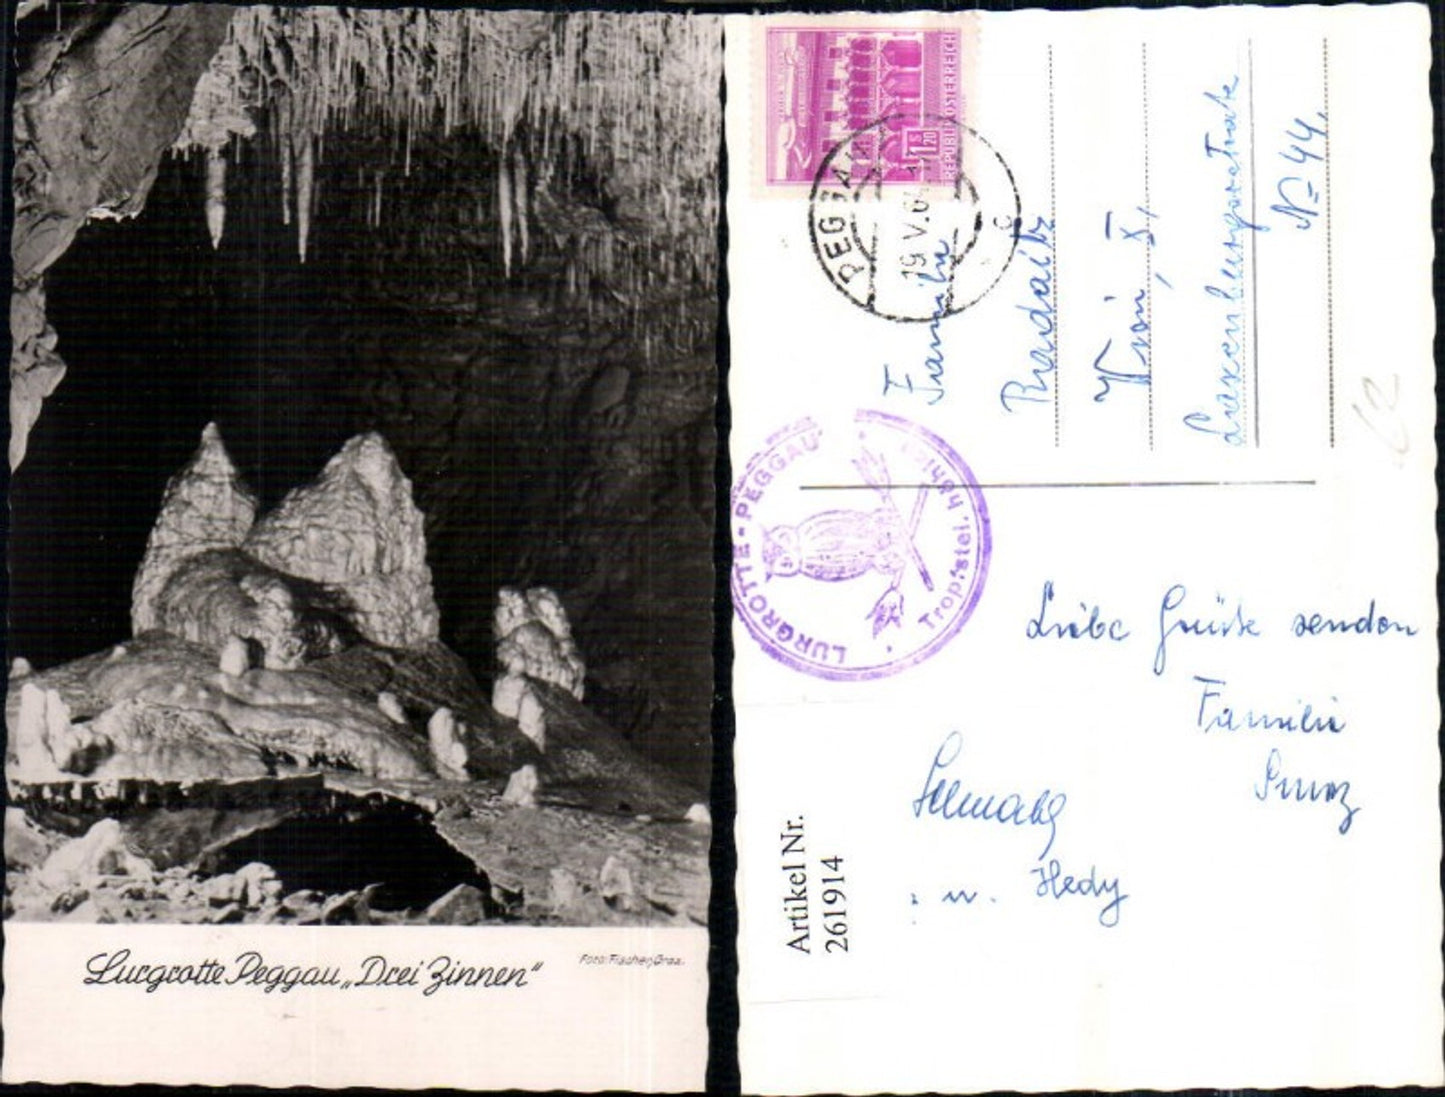 Lurgrotte Peggau „Drei Zinnen"
Foto: Fischer, Graz.
REPUBLIK ÖSTERREICH
1 S 20
PEGGAU
19. V. 6
c
Familie
Wien, X,
Laxenburgerstraße
№ 44,
LURGROTTE-PEGGAU
Tropfstei. höhle
Liebe Grüße senden
Familie
u. Hedy
Artikel Nr.
261914